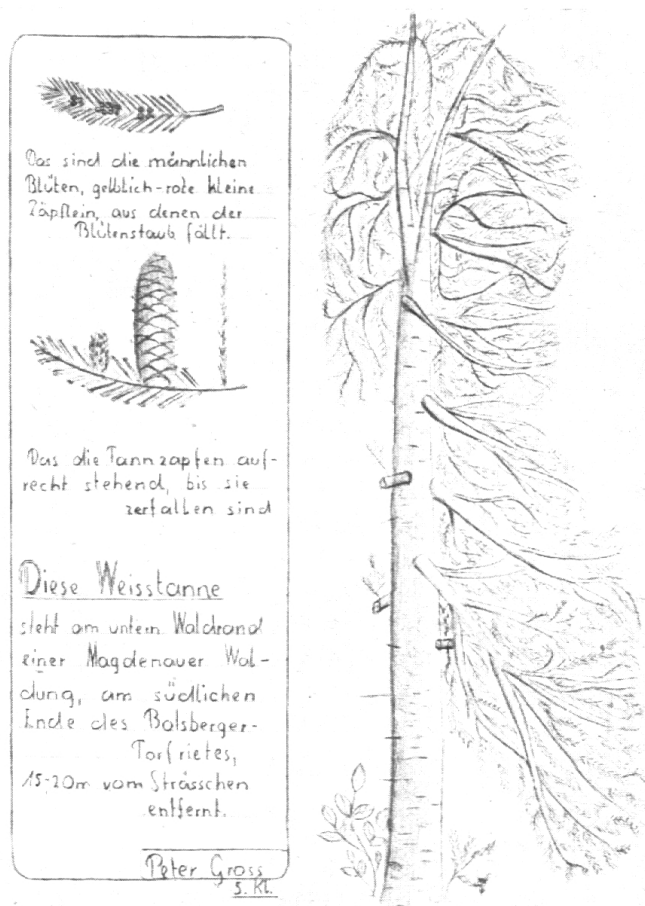 Das sind die männlichen
Blüten, gelblich-rote kleine
Zäpflein, aus denen der
Blütenstaub fällt.
Das die Tannzapfen auf-
recht stehend, bis sie
zerfallen sind
Diese Weisstanne
steht am untern Waldrand
einer Magdenauer Wal-
dung, am südlichen
Ende des Botsberger-
Torfrietes,
15-20m vom Strässchen
entfernt.
Peter Gross
5. Kl.